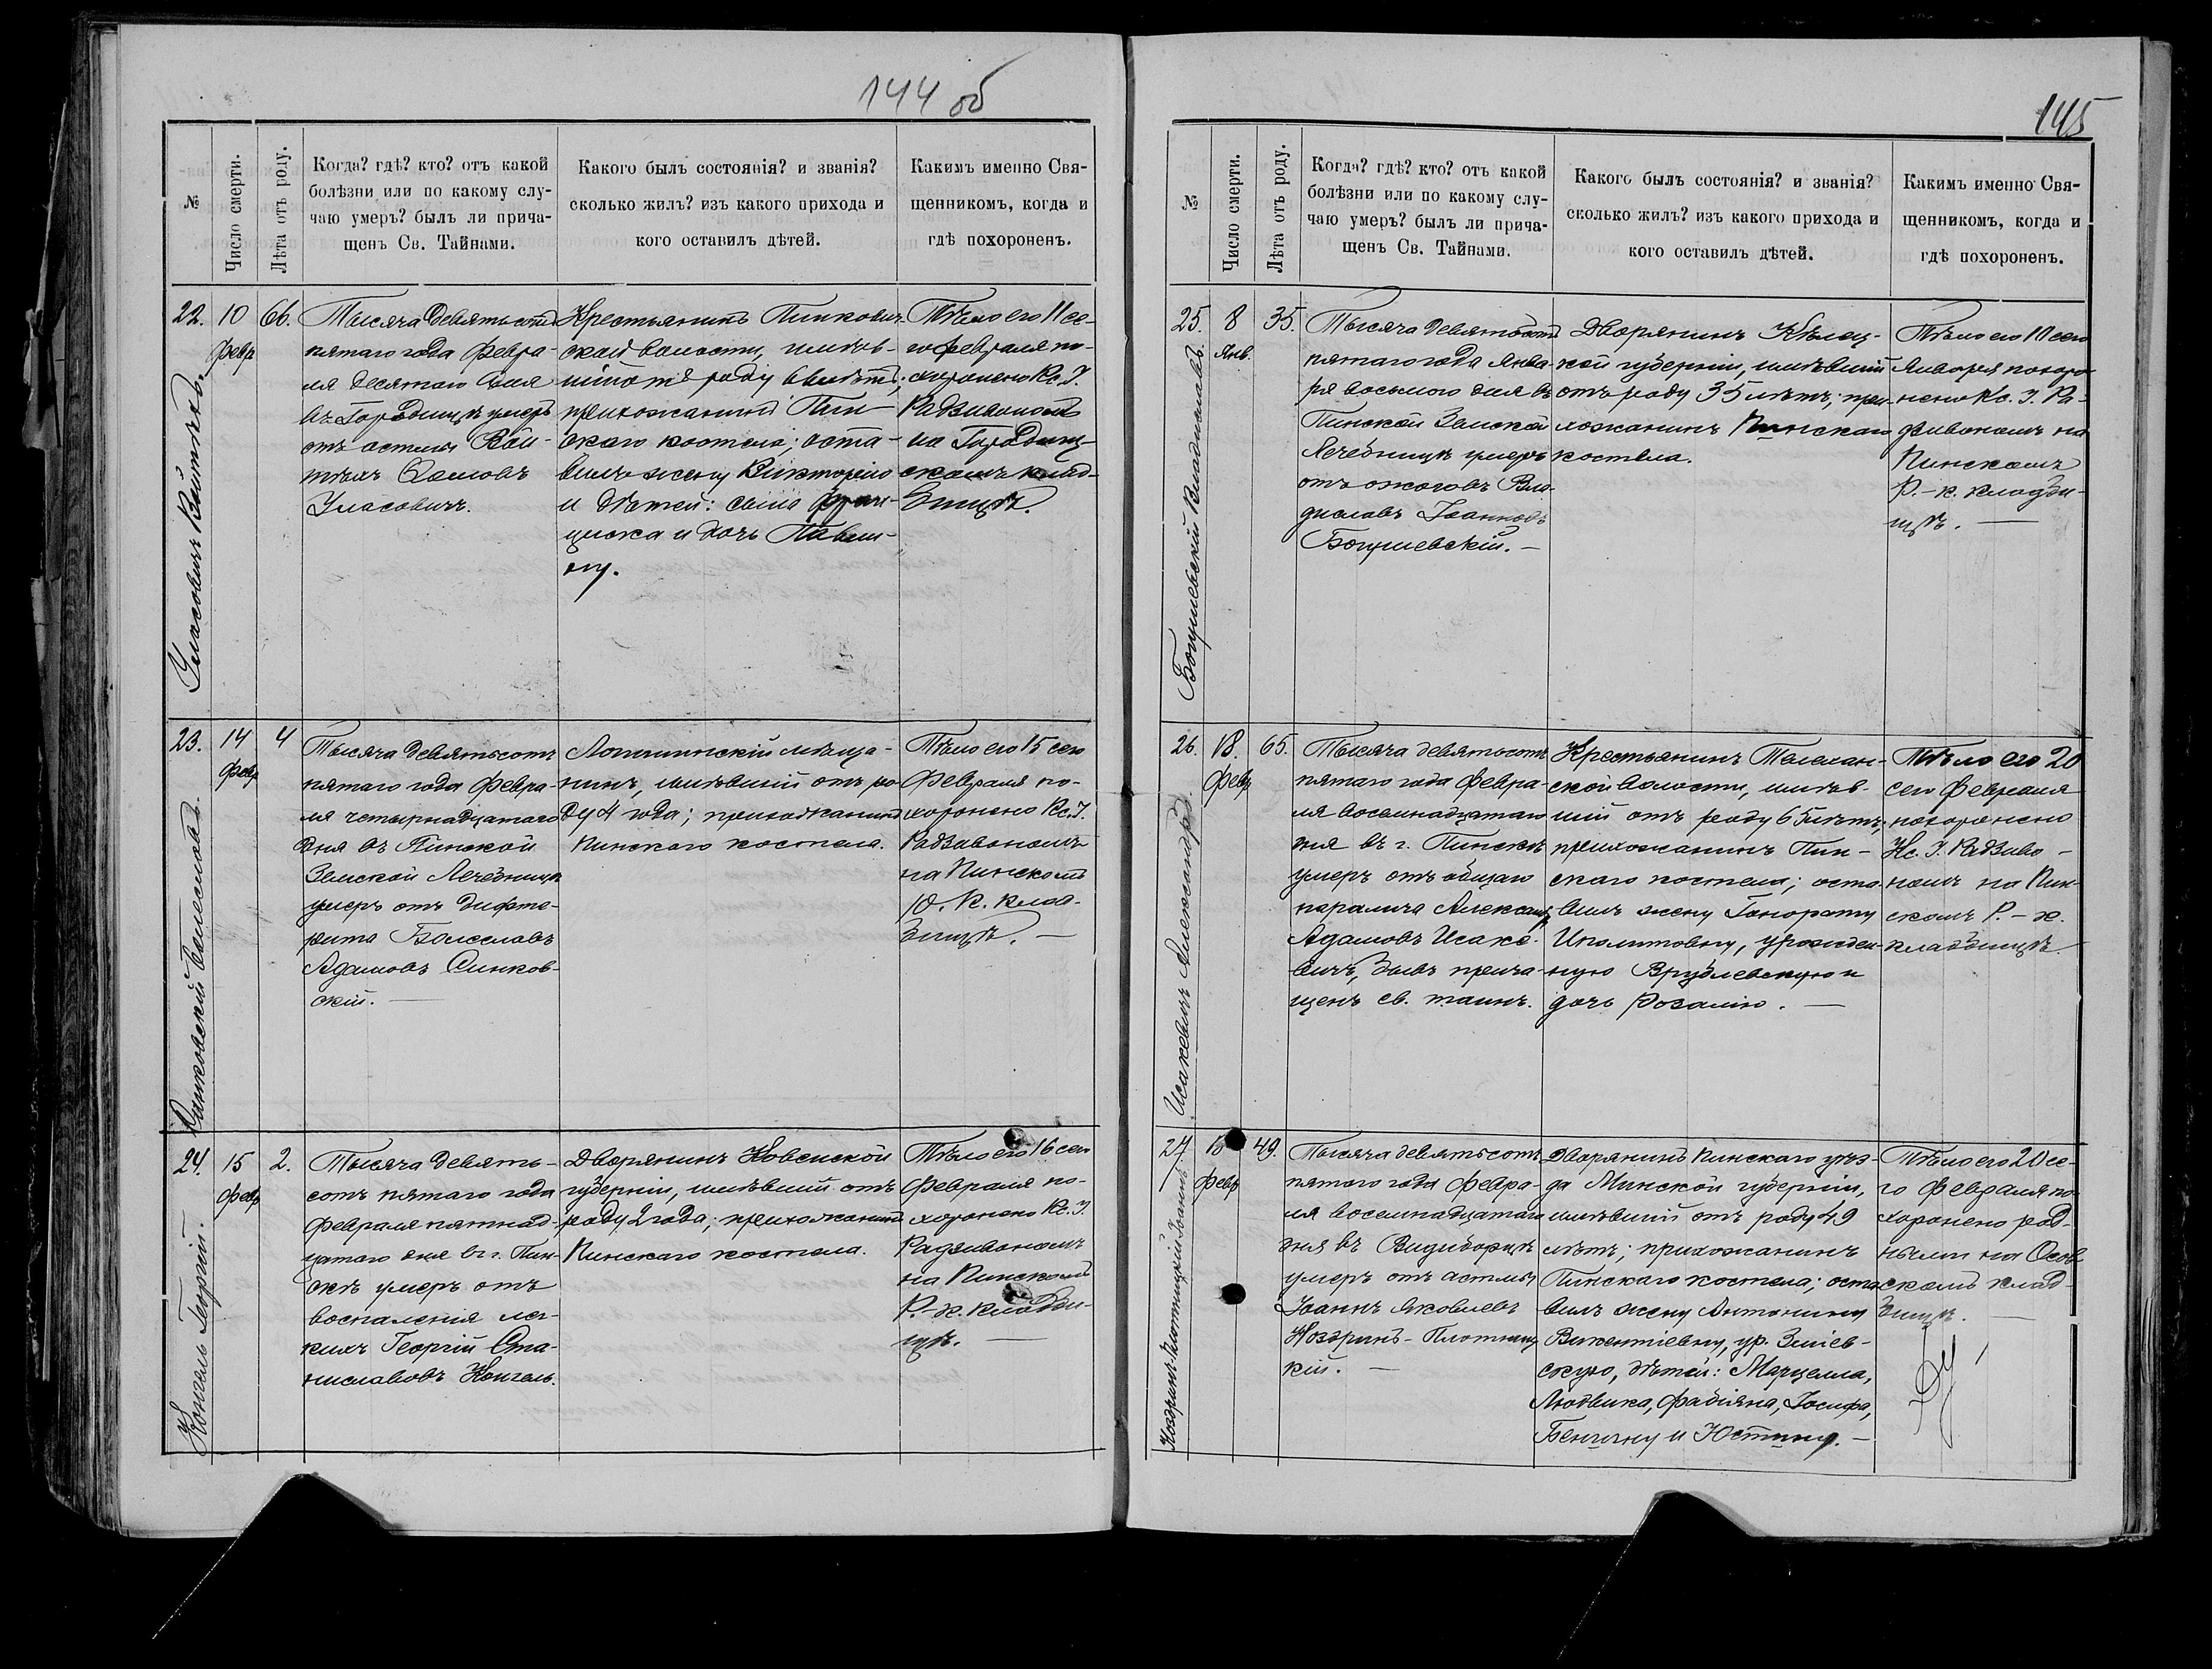 144 об
№
Число смерти.
Лѣта отъ роду.
Когда? гдѣ? кто? отъ какой
болѣзни или по какому слу-
чаю умеръ? былъ ли прича-
щенъ Св. Тайнами.
Какого былъ состоянія? и званія?
сколько жилъ? изъ какого прихода и
кого оставилъ дѣтей.
Какимъ именно Свя-
щенникомъ, когда и
гдѣ похороненъ.
22.
10
февр
66.
Тысяча девятьсотъ
пятаго года Февра-
ля десятаго дня
въ Городищѣ умеръ
отъ астмы Вой-
тѣхъ Адамовъ
Уласовичъ.
Крестьянинъ Пинкович-
ской волости, имѣв-
шій отъ роду 66 лѣтъ;
прихожанинъ Пин-
скаго костела; оста-
вилъ жену Викторію
и дѣтей: сына Фран-
циска и дочь Павли-
ну.
Тѣло его 11 се-
го февраля по-
хоронено Кс. І.
Радзивономъ
на Городищ-
скомъ клад-
бищѣ.
Уласовичъ Войтѣхъ.
23.
14
февр
4
Тысяча девятьсотъ
пятаго года Февра-
ля четырнадцатаго
дня въ Пинской
Земской Лечебницѣ
умеръ отъ дифте-
рита Болеславъ
Адамовъ Синков-
скій. —
Логишинскій мѣща-
нинъ, имѣвшій отъ ро-
ду 4 года; прихожанинъ
Пинскаго костела.
Тѣло его 15 сего
Февраля по-
хоронено Кс. І.
Радзивономъ
на Пинскомъ
Р. К. клад-
бищѣ. —
Синковскій Болеславъ.
24.
15
февр
2.
Тысяча девять-
сотъ пятаго года
Февраля пятнад-
цатаго дня въ г. Пин-
скѣ умеръ отъ
воспаленія лег-
кихъ Георгій Ста-
ниславовъ Контель.
Дворянинъ Ковенской
губерніи, имѣвшій отъ
роду 2 года; прихожанинъ
Пинскаго костела.
Тѣло его 16 сего
Февраля по-
хоронено Кс. І.
Радзивономъ
на Пинскомъ
Р.-к. кладби-
щѣ. —
Георгій.
145
№
Число смерти.
Лѣта отъ роду.
Когда? гдѣ? кто? отъ какой
болѣзни или по какому слу-
чаю умеръ? былъ ли прича-
щенъ Св. Тайнами.
Какого былъ состоянія? и званія?
сколько жилъ? изъ какого прихода и
кого оставилъ дѣтей.
Какимъ именно Свя-
щенникомъ, когда и
гдѣ похороненъ.
25.
8
Янв.
35.
Тысяча девятьсотъ
пятаго года Янва-
ря восьмого дня въ
Пинской Земской
Лечебницѣ умеръ
отъ ожоговъ Вла-
диславъ Іоанновъ
Богушевскій. —
Дворянинъ Кѣлец-
кой губерніи, имѣвшій
отъ роду 35 лѣтъ; при-
хожанинъ Пинскаго
костела.
Тѣло его 10 сего
Января похоро-
нено Кс. І. Ра-
дзивономъ на
Пинскомъ
Р.-к. кладби-
щѣ. —
Богушевскій Владиславъ.
26.
18.
февр
65.
Тысяча девятьсотъ
пятаго года Февра-
ля восемнадцатаго
дня въ г. Пинскѣ
умеръ отъ общаго
паралича Александръ
Адамовъ Исаке-
вичъ, бывъ прича-
щенъ св. таинъ.
Крестьянинъ Телехан-
ской волости, имѣв-
шій отъ роду 65 лѣтъ;
прихожанинъ Пин-
скаго костела; оста-
вилъ жену Гонорату
Иполитовну, урожден-
ную Врублевскую и
дочь Розалію. —
Тѣло его 20
сего Февраля
похоронено
Кс. І. Радзиво-
номъ на Пин-
скомъ Р.-к.
кладбищѣ.
Исакевичъ Александръ.
27.
18
февр
49.
Тысяча девятьсотъ
пятаго года Февра-
ля восемнадцатаго
дня въ Видиборцѣ
умеръ отъ астмы
Іоаннъ Яковлевъ
Ноздринъ-Плотниц-
кій. —
Дворянинъ Пинскаго уѣз-
да Минской губерніи,
имѣвшій отъ роду 49
лѣтъ; прихожанинъ
Пинскаго костела; оста-
вилъ жену Антонину
Викентіевну, ур. Зміев-
скую, дѣтей: Марцелла,
Людвика, Фабіяна, Іосифа,
Бенигну и Юстину. —
Тѣло его 20 се-
го Февраля по-
хоронено род-
ными на Осов-
скомъ клад-
бищѣ. —
Ноздринъ-Плотницкій Іоаннъ.